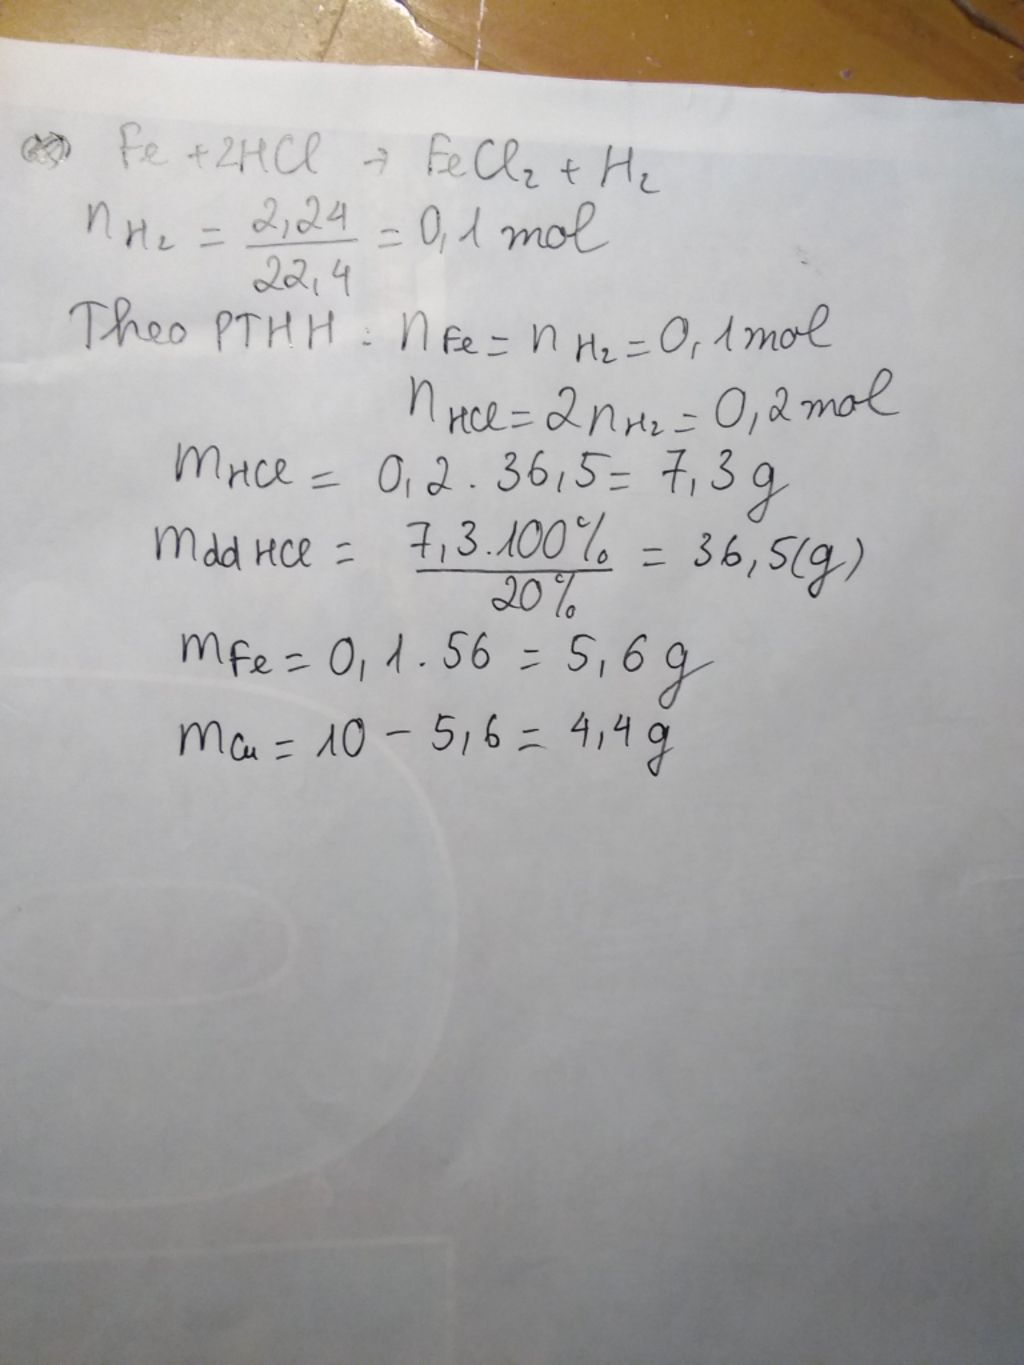 Fe + 2HCl → FeCl₂ + H₂
n H₂ = 2,24 / 22,4 = 0,1 mol
Theo PTHH : n Fe = n H₂ = 0,1 mol
n HCl = 2n H₂ = 0,2 mol
m HCl = 0,2 . 36,5 = 7,3 g
m dd HCl = 7,3.100% / 20% = 36,5(g)
m Fe = 0,1 . 56 = 5,6 g
m Cu = 10 - 5,6 = 4,4 g